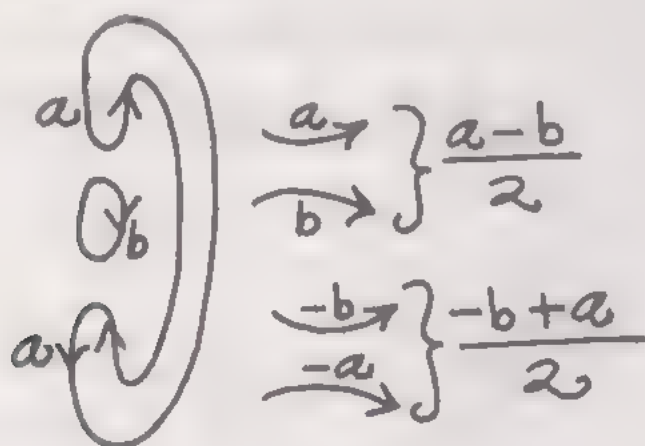 a
b
a
a
b
} a - b / 2
-b
-a
} -b + a / 2